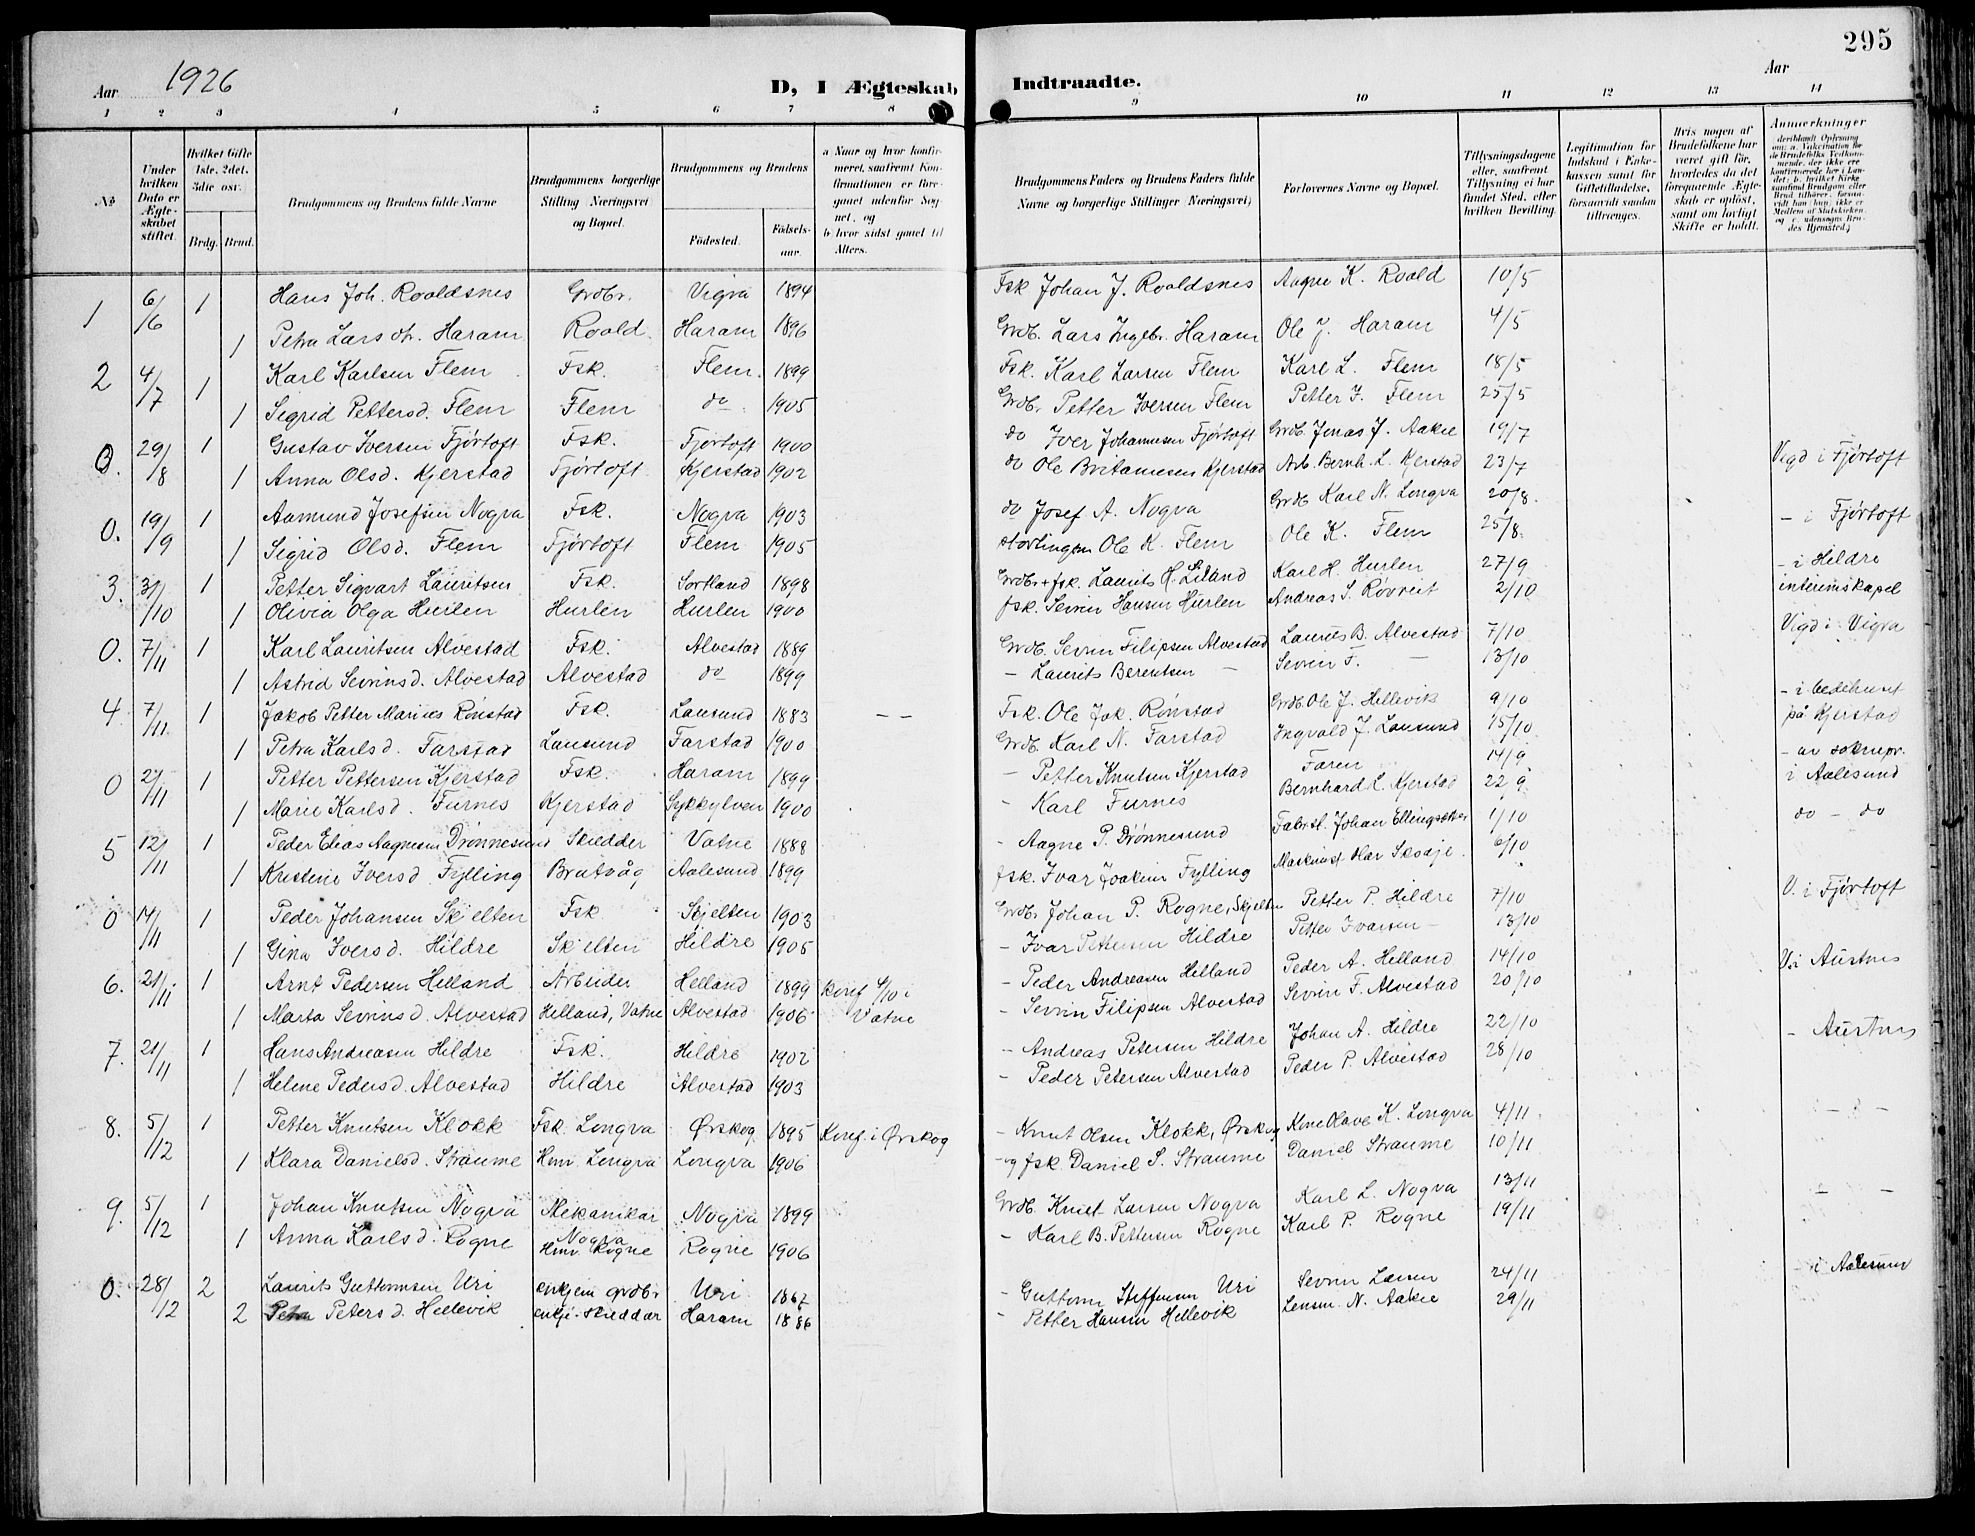 295
Aar 1926
D, I Ægteskab Indtraadte.
Aar
1 2 3 4 5 6 7 8 9 10 11 12 13 14
No
Under hvilken Dato er Ægteskabet stiftet.
Hvilket Gifte 1ste, 2det, 3die osv.
Brdg. Brud.
Brudgommens og Brudens fulde Navne
Brudgommens borgerlige Stilling Næringsvei og Bopæl.
Brudgommens og Brudens
Fødested. Fødselsaar.
a Naar og hvor konfirmeret, saafremt Konfirmationen er foregaaet udenfor Sognet, og
b hvor sidst gaaet til Alters.
Brudgommens Faders og Brudens Faders fulde Navne og borgerlige Stillinger Næringsvei)
Forlovernes Navne og Bopæl.
Tillysningsdagene eller, saafremt Tillysning ei har fundet Sted, efter hvilken Bevilling.
Legitimation for Indskud i Enkekassen samt for Giftetilladelse, forsaavidt saadan tiltrænges.
Hvis nogen af Brudefolkene har været gift før, hvorledes da det foregaaende Ægteskab er opløst, samt om lovligt Skifte er holdt.
Anmærkninger
1 6/6 1 Hans Joh. Roaldsnes Grdbr. Vigra 1894 Fsk Johan J. Roaldsnes Aagne K. Roald 10/5
1 Petra Lars dr. Haram Roald Haram 1896 Grdb. Lars Ingebr. Haram Ole J. Haram 4/5
2 4/7 1 Karl Karlsen Flem Fsk. Flem. 1899 Fsk. Karl Larsen Flem Karl L. Flem 18/5
1 Sigrid Pettersd. Flem Flem do 1905 Grdb. Petter Iversen Flem Petter J. Flem 25/5
0. 29/8 1 Gustav Iversen Fjørtoft Fsk. Fjørtoft 1900 do Iver Johannesen Fjørtoft Grdb. Jonas J. Aakre 19/7 Vigd i Fjørtoft
1 Anna Olsd. Kjerstad Fjørtoft Kjerstad 1902 do Ole Kjerstad Arb. Bernh. L. Kjerstad 23/7
0. 19/9 1 Aamund Josefsen Nogva Fsk. Nogva 1903 do Josef A. Nogva Grdb Karl N. Longva 20/8. - i Fjørtoft
1 Sigrid Olsd. Flem Fjørtoft Flem 1905 Ole K. Flem Ole K. Flem 25/8.
3. 31/10 1 Petter Sigvart Lauritsen Fsk. Sortland 1898 Grdbr + fsk. Laurits H. Liland Karl H. Hurlen 27/9 - i Hildre
1 Olivia Olga Hurlen Hurlen Hurlen 1900 fsk. Sevrin Hansen Hurlen Andreas S. Røvreit 2/10 interimskapel
0. 7/11 1 Karl Lauritsen Alvestad Fsk. Alvestad 1889 Grdb. Sevrin Filipsen Alvestad Laurits B. Alvestad 7/10 Vigd i Vigra
1 Astrid Sevrinsd. Alvestad Alvestad do 1899 - Laurits Berentsen - Sevrin F. - 13/10
4. 7/11 1 Jakob Petter Marius Rønstad Fsk. Lausund 1883 - - Fsk. Ole Jak. Rønstad Grdb. Ole J. Hellevik 9/10 - i bedehuset
1 Petra Karlsd. Farstad Lausund Farstad 1900 Grdb. Karl N. Farstad Ingvald J. Lausund 15/10 på Kjerstad
0 21/11 1 Petter Pettersen Kjerstad Fsk. Haram 1899 - Petter Knutsen Kjerstad Faren 14/9 - av soknepr.
1 Marie Karlsd. Furnes Kjerstad Sykkylven 1900 - Karl Furnes Bernhard L. Kjerstad 22/9 i Aalesund
5 12/11 1 Peder Elias Aagnesen Drønnesund Skredder Vatne 1888 - Aagne P. Drønnesund Johan Ellingsæter 1/10 do - do
1 Kristine Iversd. Fylling Brattvåg Aalesund 1899 fsk. Ivar Joakim Fylling Maskinist 6/10
0 14/11 1 Peder Johansen Skjelten Fsk Skjelten 1903 Grdbr Johan P. Rogne, Skjelten Petter P. Hildre 7/10 V. i Fjørtoft
1 Gina Iversd. Hildre Skjelten Hildre 1905 - Ivar Pettersen Hildre Petter Ivarsen - 13/10
6. 21/11 1 Arnt Pedersen Helland Arbeider Helland 1899 Konf 4/10 i - Peder Andreasen Helland Peder A. Helland 14/10 V. i Austnes
1 Marta Sevrins d. Alvestad Helland, Vatne Alvestad 1906 Vatne - Sevrin Filipsen Alvestad Sevrin F. Alvestad 20/10
7. 21/11 1 Hans Andreasen Hildre Fsk. Hildre 1902 - Andreas Petersen Hildre Johan A. Hildre 22/10 - Austnes
1 Helene Pedersd. Alvestad Hildre Alvestad 1903 - Peder Petersen Alvestad Peder P. Alvestad 28/10
8. 5/12 1 Petter Knutsen Klokk Fsk. Longva Ørskog 1895 Konf. i Ørskog - Knut Olsen Klokk, Ørskog K. Longva 4/11 - - -
1 Klara Danielsd. Straume Hmv. Longva Longva 1906 - og fsk. Daniel S. Straume Daniel Straume 10/11
9. 5/12 1 Johan Knutsen Nogva Mekanikar Nogva 1899 Grdb. Knut Larsen Nogva Karl L. Nogva 13/11 - -
Nogva
1 Anna Karlsd. Rogne Hmv. Rogne Rogne 1906 - Karl B. Pettersen Rogne Karl P. Rogne 19/11
0. 28/12 2 Laurits Guttormsen Uri enkjem grdbr Uri 1867 - Guttorm Steffensen Uri Sevrin Larsen 24/11 - i Aalesund
2 Petra Peters d. Hellevik enkje - skreddar Haram 1886 - Petter Hansen Hellevik Lensm. N. Aakre 29/11